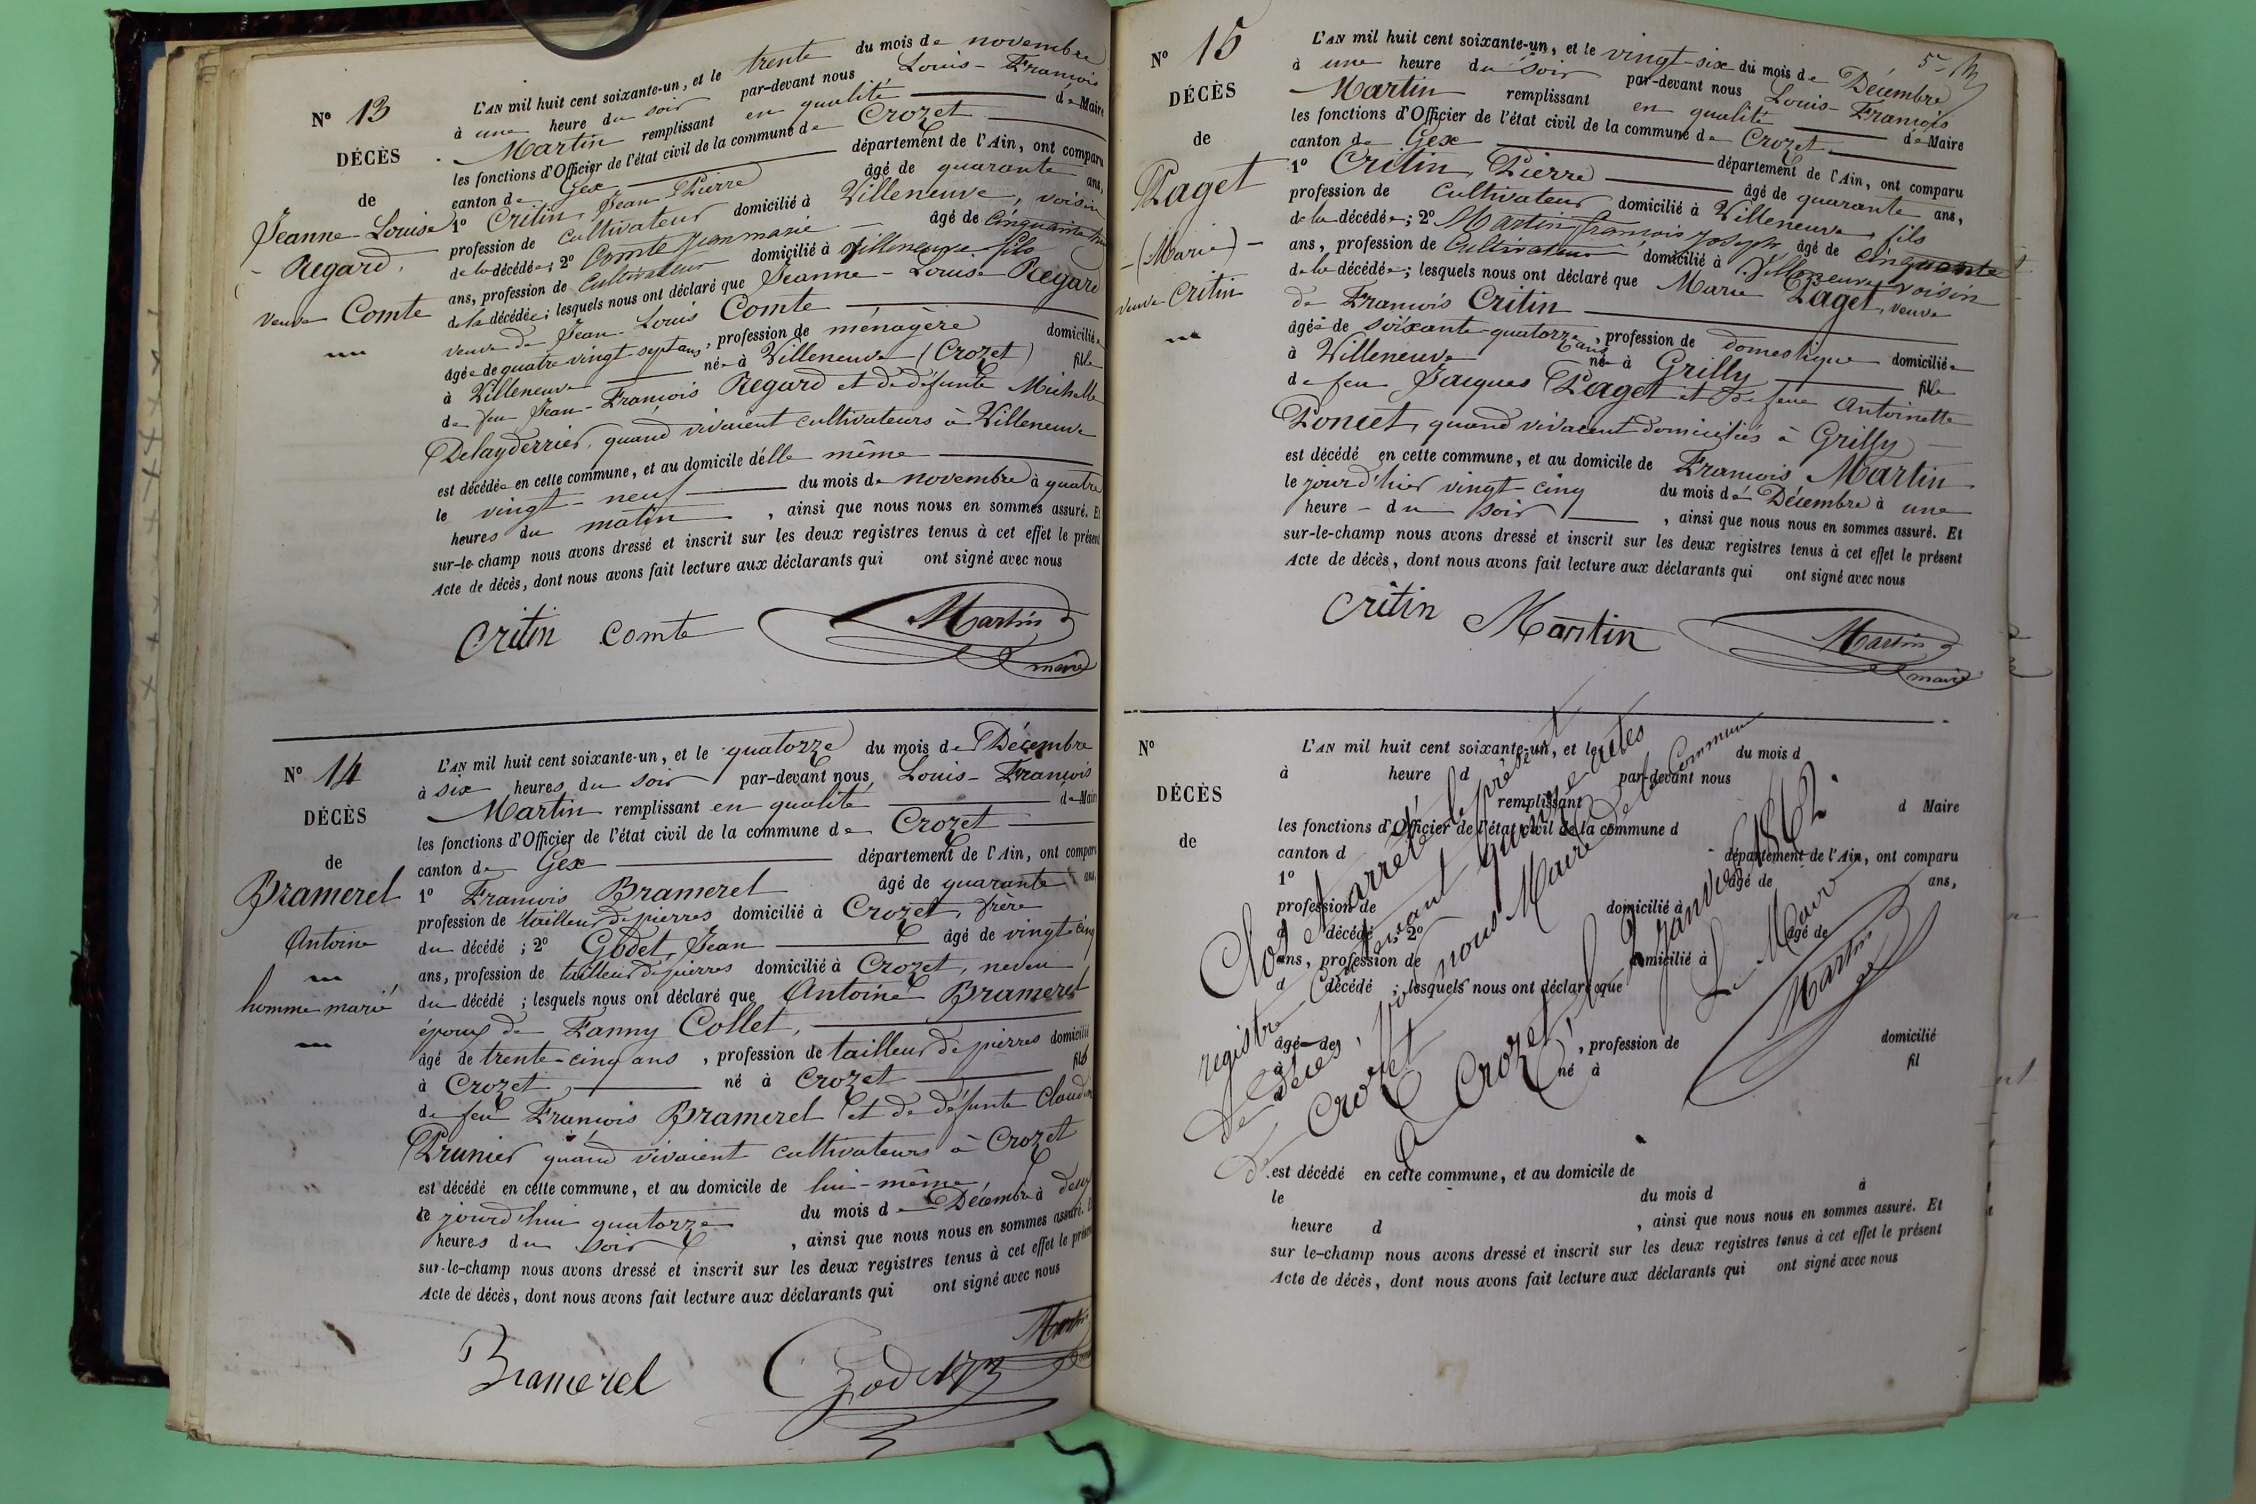 N° 13
DÉCÈS
de
Jeanne-Louise
Regard,
veuve Comte
L'AN mil huit cent soixante-un, et le trente du mois de novembre
à une heure du soir par-devant nous Louis-François
Martin remplissant en qualité de Maire
les fonctions d'Officier de l'état civil de la commune de Crozet
canton de Gex département de l'Ain, ont comparu
1° Critin, Jean Pierre âgé de quarante ans,
profession de cultivateur domicilié à Villeneuve, voisin
de la décédée; 2° Comte Jean marie âgé de cinquante
ans, profession de Cultivateur domicilié à Villeneuve fils
de la décédée; lesquels nous ont déclaré que Jeanne-Louise Regard
veuve de Jean-Louis Comte
âgée de quatre vingt sept ans, profession de ménagère domiciliée
à Villeneuve née à Villeneuve (Crozet) fille
de feu Jean-François Regard et de défunte Michelle
Delayderrier, quand vivaient cultivateurs à Villeneuve
est décédée en cette commune, et au domicile d'elle même
le vingt-neuf du mois de novembre à quatre
heures du matin, ainsi que nous nous en sommes assuré. Et
sur-le-champ nous avons dressé et inscrit sur les deux registres tenus à cet effet le présent
Acte de décès, dont nous avons fait lecture aux déclarants qui ont signé avec nous
Critin Comte Martin
maire
N° 14
DÉCÈS
de
Bramerel
Antoine
homme marié
L'AN mil huit cent soixante-un, et le quatorze du mois de Décembre
à six heures du soir par-devant nous Louis-François
Martin remplissant en qualité de Maire
les fonctions d'Officier de l'état civil de la commune de Crozet
canton de Gex département de l'Ain, ont comparu
1° François Bramerel âgé de quarante ans,
profession de tailleur de pierres domicilié à Crozet, frère
du décédé; 2° Godet, Jean âgé de vingt-cinq
ans, profession de tailleur de pierres domicilié à Crozet, neveu
du décédé; lesquels nous ont déclaré que Antoine Bramerel
époux de Fanny Collet,
âgé de trente-cinq ans, profession de tailleur de pierres domicilié
à Crozet, né à Crozet fils
de feu François Bramerel et de défunte Claudine
Prunier quand vivaient cultivateurs à Crozet
est décédé en cette commune, et au domicile de lui-même
le jourd'hui quatorze du mois de Décembre à deux
heures du soir, ainsi que nous nous en sommes assuré. Et
sur-le-champ nous avons dressé et inscrit sur les deux registres tenus à cet effet le présent
Acte de décès, dont nous avons fait lecture aux déclarants qui ont signé avec nous
Martin
Bramerel Godet
N° 15
DÉCÈS
de
Paget
(Marie)
veuve Critin
L'AN mil huit cent soixante-un, et le vingt-six du mois de Décembre
à une heure du soir par-devant nous Louis-François
Martin remplissant en qualité de Maire
les fonctions d'Officier de l'état civil de la commune de Crozet
canton de Gex département de l'Ain, ont comparu
1° Critin, Pierre âgé de quarante ans,
profession de Cultivateur domicilié à Villeneuve, fils
de la décédée; 2° Martin françois joseph âgé de cinquante
ans, profession de Cultivateur domicilié à Villeneuve voisin
de la décédée; lesquels nous ont déclaré que Marie Paget, veuve
de François Critin
âgée de soixante-quatorze ans, profession de domestique domiciliée
à Villeneuve née à Grilly fille
de feu Jacques Paget et de feue Antoinette
Poncet, quand vivaient domiciliés à Grilly
est décédé en cette commune, et au domicile de François Martin
le jour d'hier vingt-cinq du mois de Décembre à une
heure du soir, ainsi que nous nous en sommes assuré. Et
sur-le-champ nous avons dressé et inscrit sur les deux registres tenus à cet effet le présent
Acte de décès, dont nous avons fait lecture aux déclarants qui ont signé avec nous
Critin Martin Martin
maire
N°
DÉCÈS
de
L'AN mil huit cent soixante-un, et le du mois d
à heure d par-devant nous
remplissant d Maire
les fonctions d'Officier de l'état civil de la commune d
canton d département de l'Ain, ont comparu
1° âgé de ans,
profession de domicilié à
d décédé ; 2° âgé de
ans, profession de domicilié à
d décédé ; lesquels nous ont déclaré que
âgé de , profession de domicilié
à né à fil
est décédé en cette commune, et au domicile de
le du mois d à
heure d , ainsi que nous nous en sommes assuré. Et
sur le-champ nous avons dressé et inscrit sur les deux registres tenus à cet effet le présent
Acte de décès, dont nous avons fait lecture aux déclarants qui ont signé avec nous
Clos et arrêté le présent
registre contenant quinze actes
de décès, par nous Maire de la Commune
de Crozet
à Crozet, le janvier 1862.
Le Maire
Martin